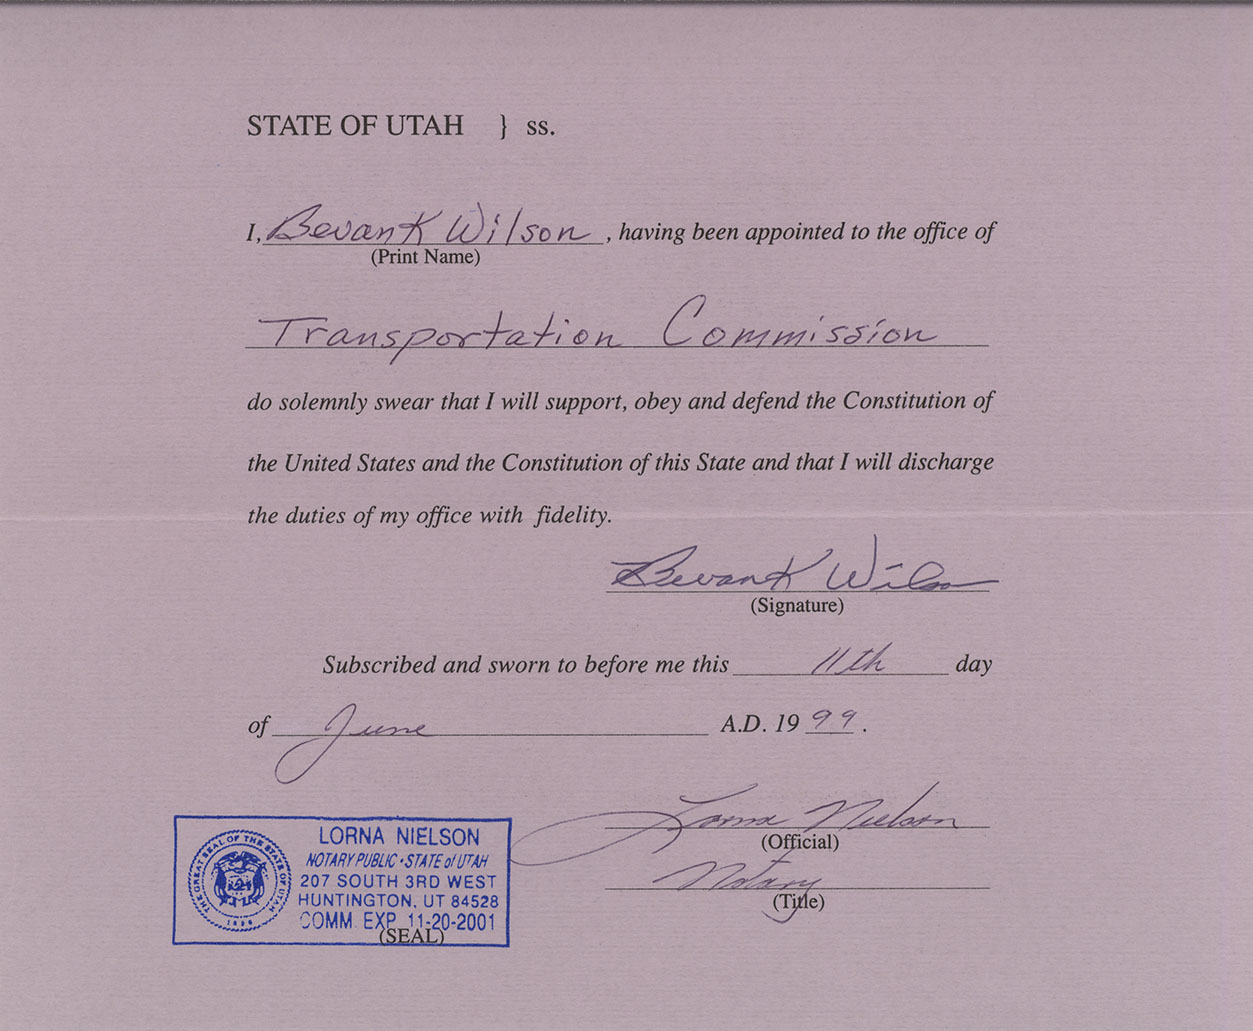 STATE OF UTAH } ss.
I, Bevan K Wilson , having been appointed to the office of
(Print Name)
Transportation Commission
do solemnly swear that I will support, obey and defend the Constitution of
the United States and the Constitution of this State and that I will discharge
the duties of my office with fidelity.
Bevan K Wilson
(Signature)
Subscribed and sworn to before me this 11th day
of June A.D. 19 99 .
Lorna Nielson
(Official)
Notary
(Title)
THE GREAT SEAL OF THE STATE OF UTAH
1896
LORNA NIELSON
NOTARY PUBLIC • STATE of UTAH
207 SOUTH 3RD WEST
HUNTINGTON, UT 84528
COMM. EXP. 11-20-2001
(SEAL)